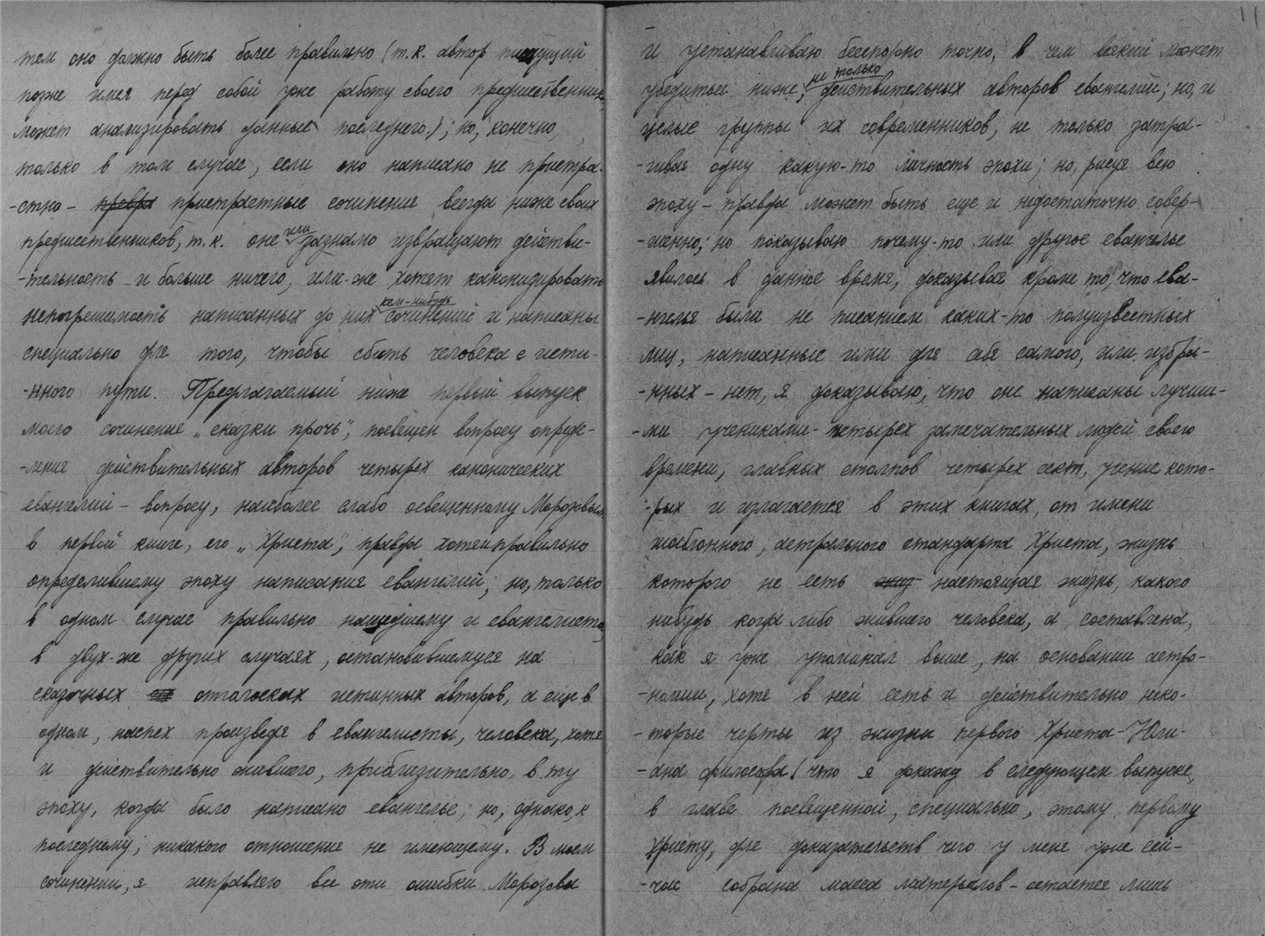 тем оно должно быть более правильно (т.к. автор пишущий
позже имея перед собой уже работу своего предшественника
может анализировать данные последнего); но, конечно,
только в том случае, если оно написано не пристра-
-стно – пристрастные сочинения всегда ниже своих
предшественников, т.к. оне или заднамо извращают действи-
-тельность и больше ничего, или-же хотят канонизировать
непогрешимость написанных до них кем-нибудь сочинений и написаны
специально для того, чтобы сбить человека с исти-
-нного пути. Предлагаемый ниже первый выпуск
моего сочинения „сказки прочь", посвещен вопросу опреде-
-ления действительных авторов четырех канонических
евангелий – вопросу, наиболее слабо освещенному Морозовым
в первой книге, его „Христа", правда хотя и правильно
определившему эпоху написания евангелий; но, только
в одном случае правильно нашедшему и евангелиста,
в двух-же других случаях, остановившемуся на
сказочных отголосках истинных авторов, а еще в
одном, наспех произведя в евангелисты, человека, хотя
и действительно жившего, приблизительно в ту
эпоху, когда было написано евангелье; но, однако, к
последному, никакого отношения не имеющему. В моем
сочинении, я исправляю все эти ошибки Морозова
11
и устанавливаю бесспорно точно, в чем всякий может
убедиться ниже, не только действительных авторов евангелий; но, и
целые группы их современников, не только затра-
-гивая одну какую-то личность эпохи; но, рисуя всю
эпоху – правда может быть еще и недостаточно совер-
-шенно; но показываю почему-то или другое евангелье
явилось в данное время, доказывая кроме то, что ева-
-нгелья были не писанием каких-то полуизвестных
лиц, написанные ими для себя самого, или избра-
-нных – нет, я доказываю, что оне написаны лучши-
-ми учениками четырех замечательных людей своего
времени, главных столпов четырех сект, учение кото-
-рых и излагается в этих книгах, от имени
шаблонного, астрального стандарта Христа, жизнь
которого не есть настоящая жизнь, какого
нибудь когда либо жившего человека, а составлена,
как я уже упоминал выше, на основании астро-
-номии, хотя в ней есть и действительно неко-
-торые черты из жизни первого Христа – Юли-
-ана философа (что я докажу в следующем выпуске,
в главе посвещенной, специально, этому первому
Христу, для доказательств чего у меня уже сей-
-час собрана масса матерьялов – остается лишь